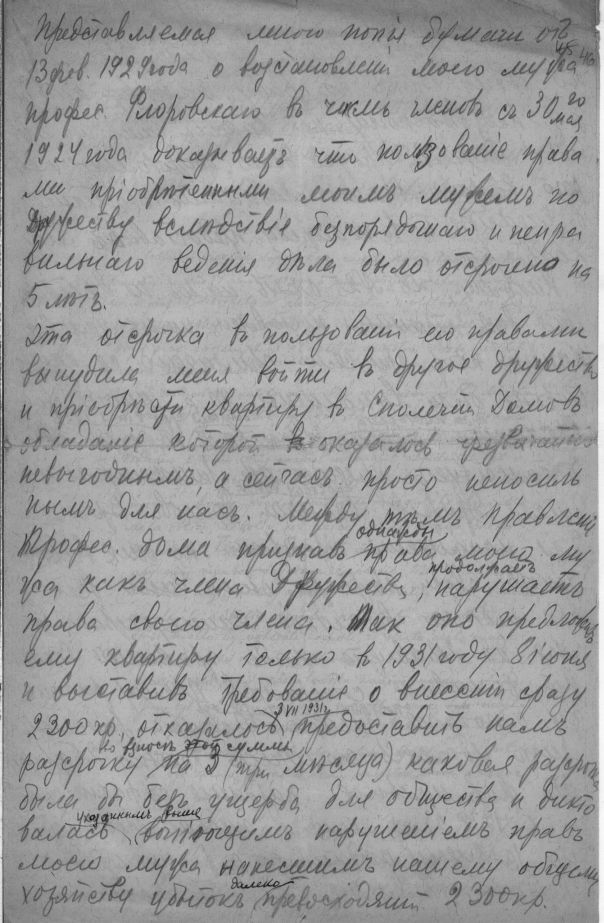 Представляемая мною копія бумаги отъ
13 фев. 1929 года о возстановленіи моего мужа
профес. Флоровскаго въ числѣ членовъ съ 30го мая
1924 года доказываетъ что пользованіе права
ми пріобрѣтенными моимъ мужемъ по
Дружеству вслѣдствіе безпорядочнаго и непра
вильнаго веденія дѣла было отсрочено на
5 лѣтъ.
Эта отсрочка въ пользованіи его правами
вынудила меня войти въ другое дружество
и пріобрѣсти квартиру въ Сполечти Домовъ
обладаніе которой оказалось чрезвычайно
невыгоднымъ, а сейчасъ просто непосиль
нымъ для насъ. Между тѣмъ правленіе
Професс. дома признавъ однажды права моего му
жа какъ члена Дружества, продолжаетъ нарушать
права своего члена. Такъ оно предложило
ему квартиру только въ 1931 году 8 іюня
и выставивъ требованіе о внесеніи сразу
2300 кр. отказалось 3 VII 1931 г. предоставить намъ
разсрочку во взносѣ этой суммы на 3 (три мѣсяца) каковая разсрочка
была бы безъ ущерба для общества и дикто
валась указаннымъ выше вопіющимъ нарушеніемъ правъ
моего мужа нанесшимъ нашему общему
хозяйству убытокъ далеко превосходящій 2300 кр.